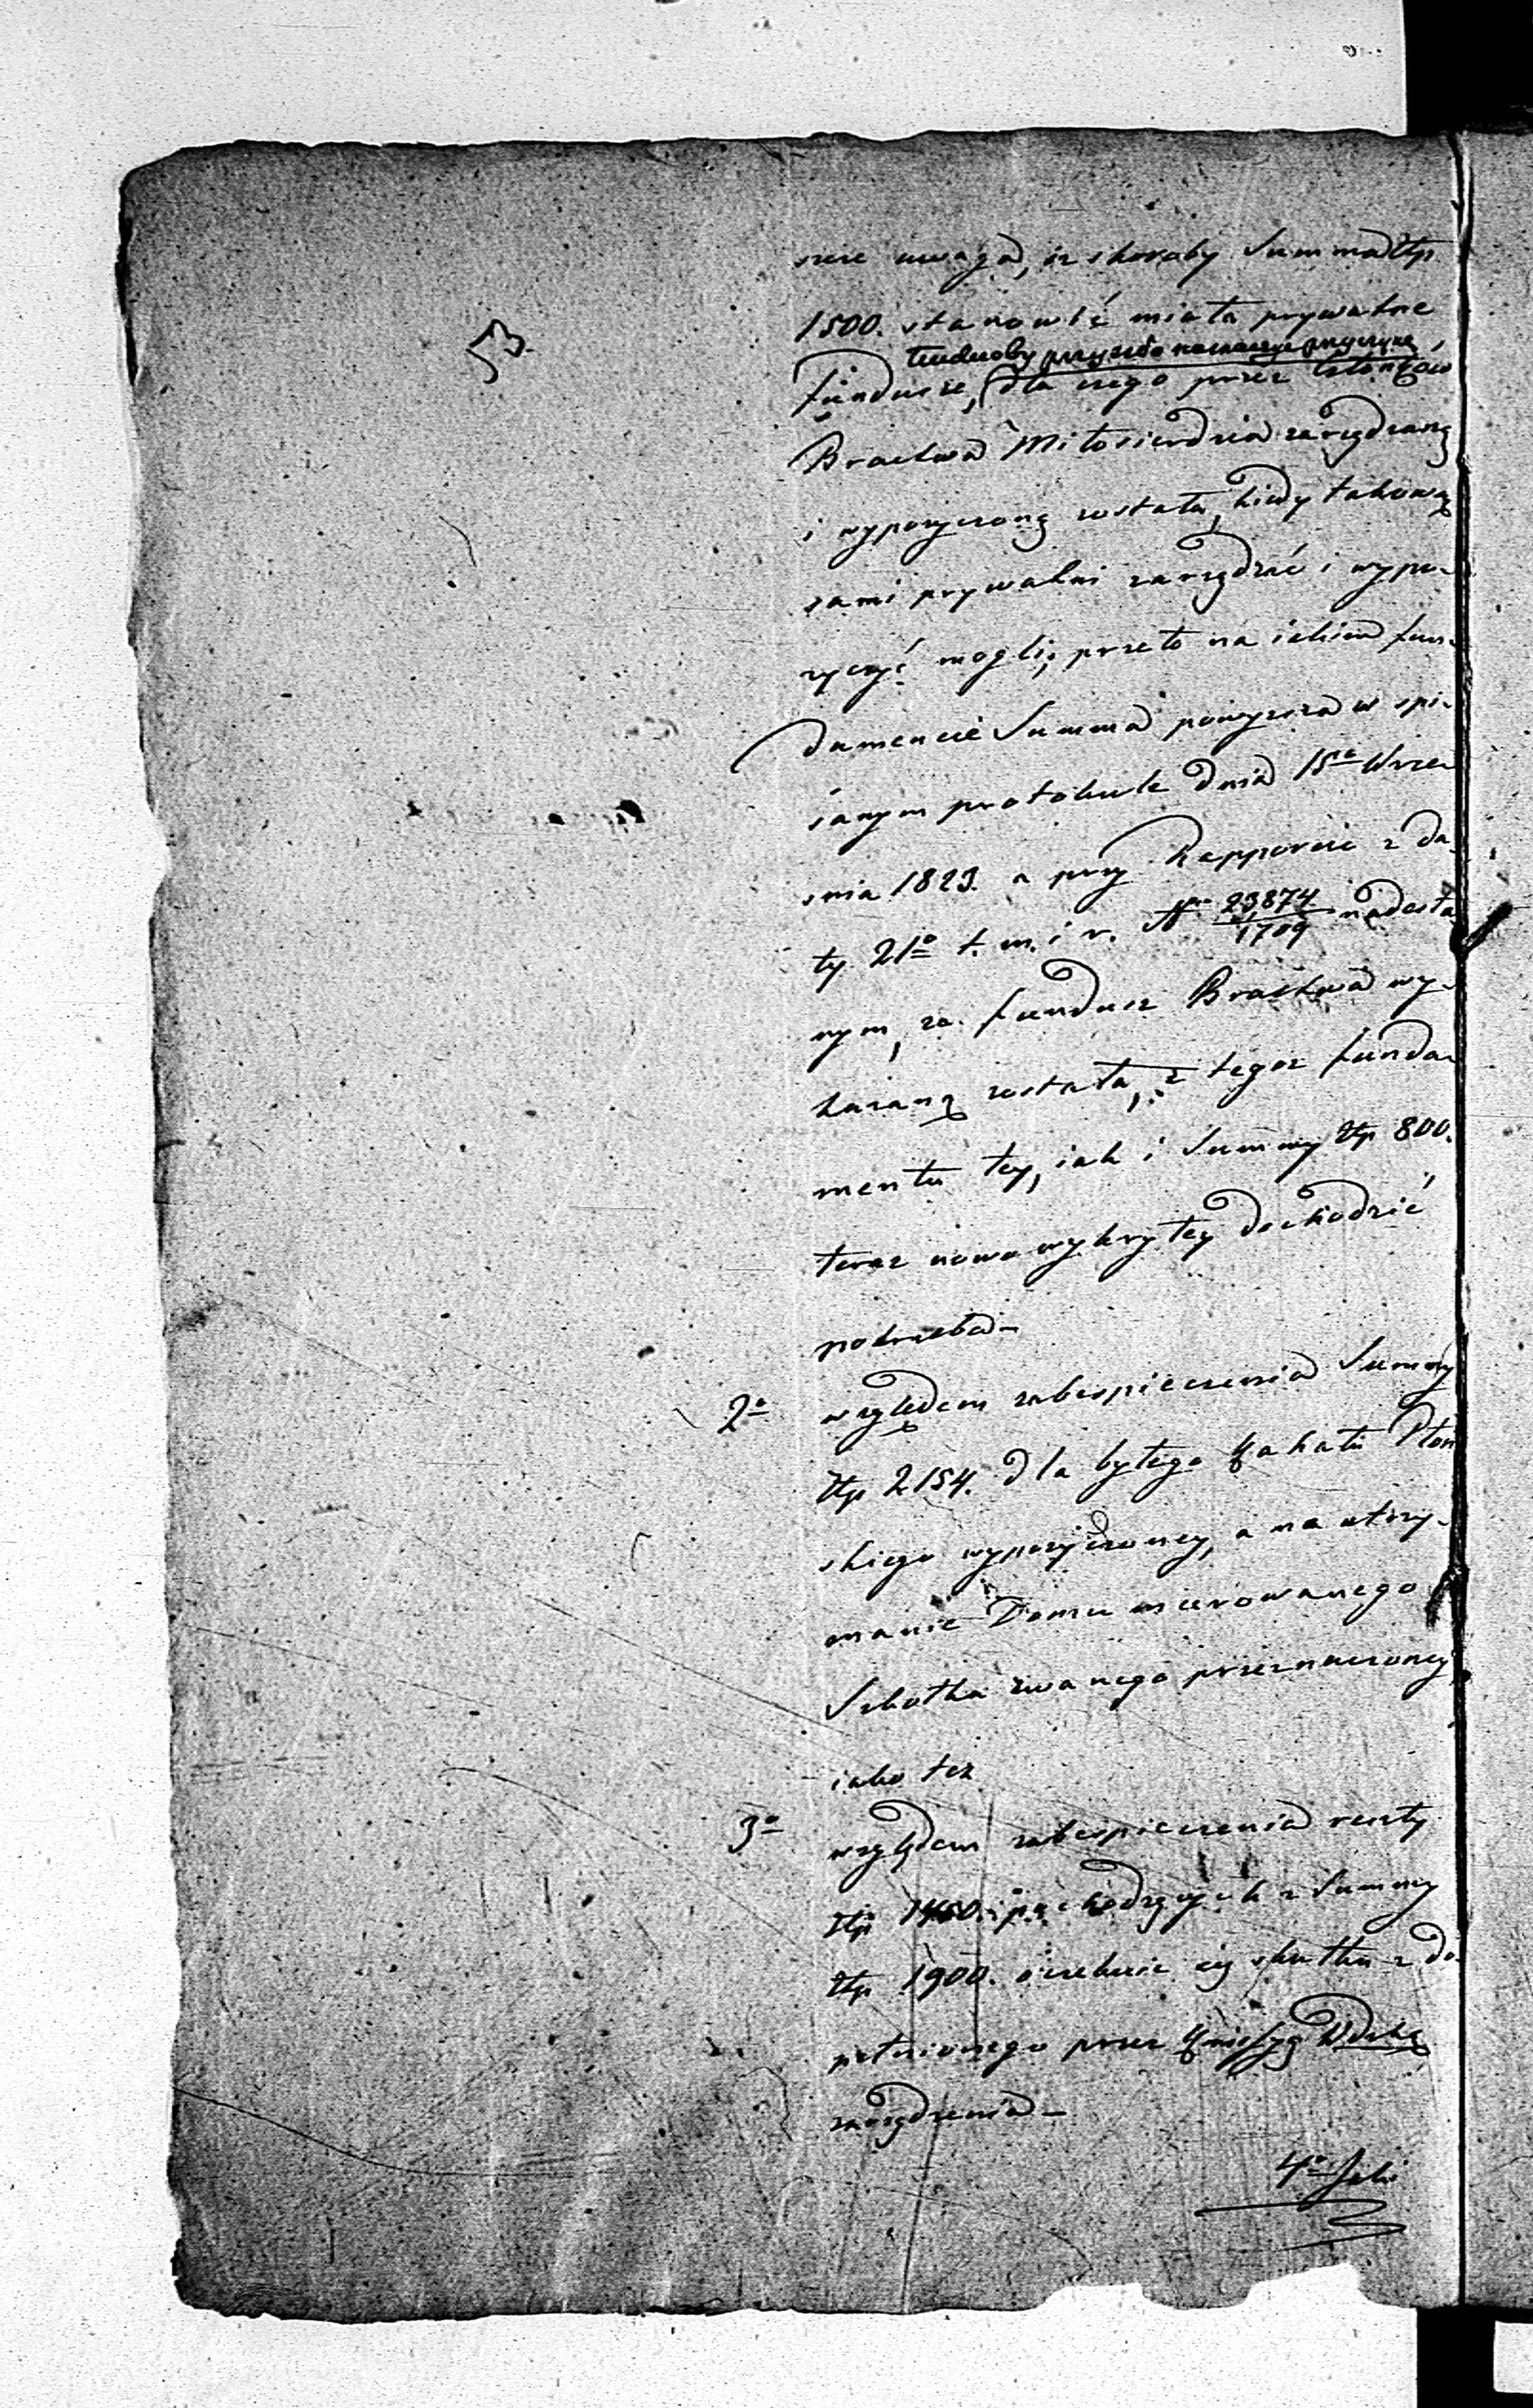 53.
szcze uwaga, iż skoroby Summa Złp
1500. stanowić miała prywatne
trudnoby przyszło naznaczyć przyczynę,
fundusze, dla czego przez Członków
Bractwa Miłosierdzia zarządzaną
i wypożyczoną została, kiedy takową
sami prywatni zarządzać i wypo-
życzyć mogli; przeto na jakim fun-
damencie Summa powyższa w spi-
sanym protokule dnia 15go Wrze-
śnia 1823. a przy Rapporcie z da-
ty 21o t. m. i r. Nro 23874/1709 nadesła-
nym, za fundusz Bractwa wy-
kazaną została, z tegoż funda-
mentu tey, iak i Summy Złp 800.
teraz nowo wykrytey dochodzić
potrzeba –
2o względem zabespieczenia Summy
Złp 2154. dla byłego Kahału Płoń
skiego wypożyczoney, a na utrzy-
manie Domu murowanego
Szkołka zwanego przeznaczoney
iako też
3o względem zabespieczenia reszty
Złp 1460. pochodzących z Summy
Złp 1900. oczekuie się skutku z do-
pełnionego przez Kmissyą Wdzką
zarządzenia –
4o